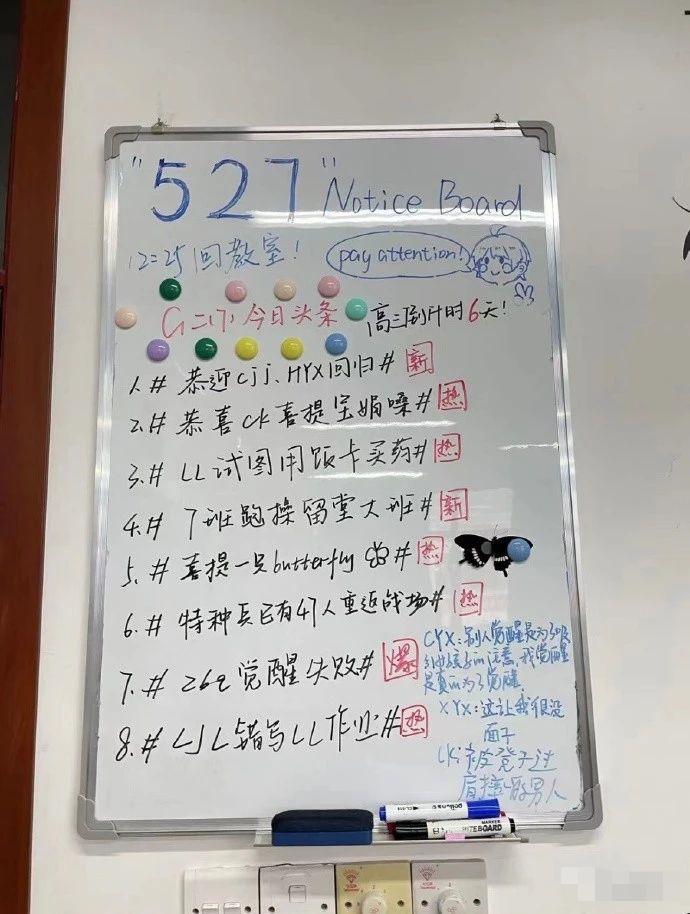 "527" Notice Board
12=25回教室！
pay attention!
G二(7)今日头条
高三倒计时6天！
1.# 恭迎CJJ、HYX回归# 新
2.# 恭喜CK喜提宝娟嗓# 热
3.# LL试图用饭卡买药# 热
4.# 7班跑操留堂大班# 新
5.# 喜提一只butterfly # 热
6.# 特种兵已有47人重返战场# 热
7.# 262觉醒失败# 爆
8.# LJL错写LL作业# 热
CYX:别人觉醒是为了吸
注意,我觉醒
是真in为了觉醒.
XYX:这让我很没
面子
LK:被凳子过
肩摔的男人
WHITEBOARD
MARKER